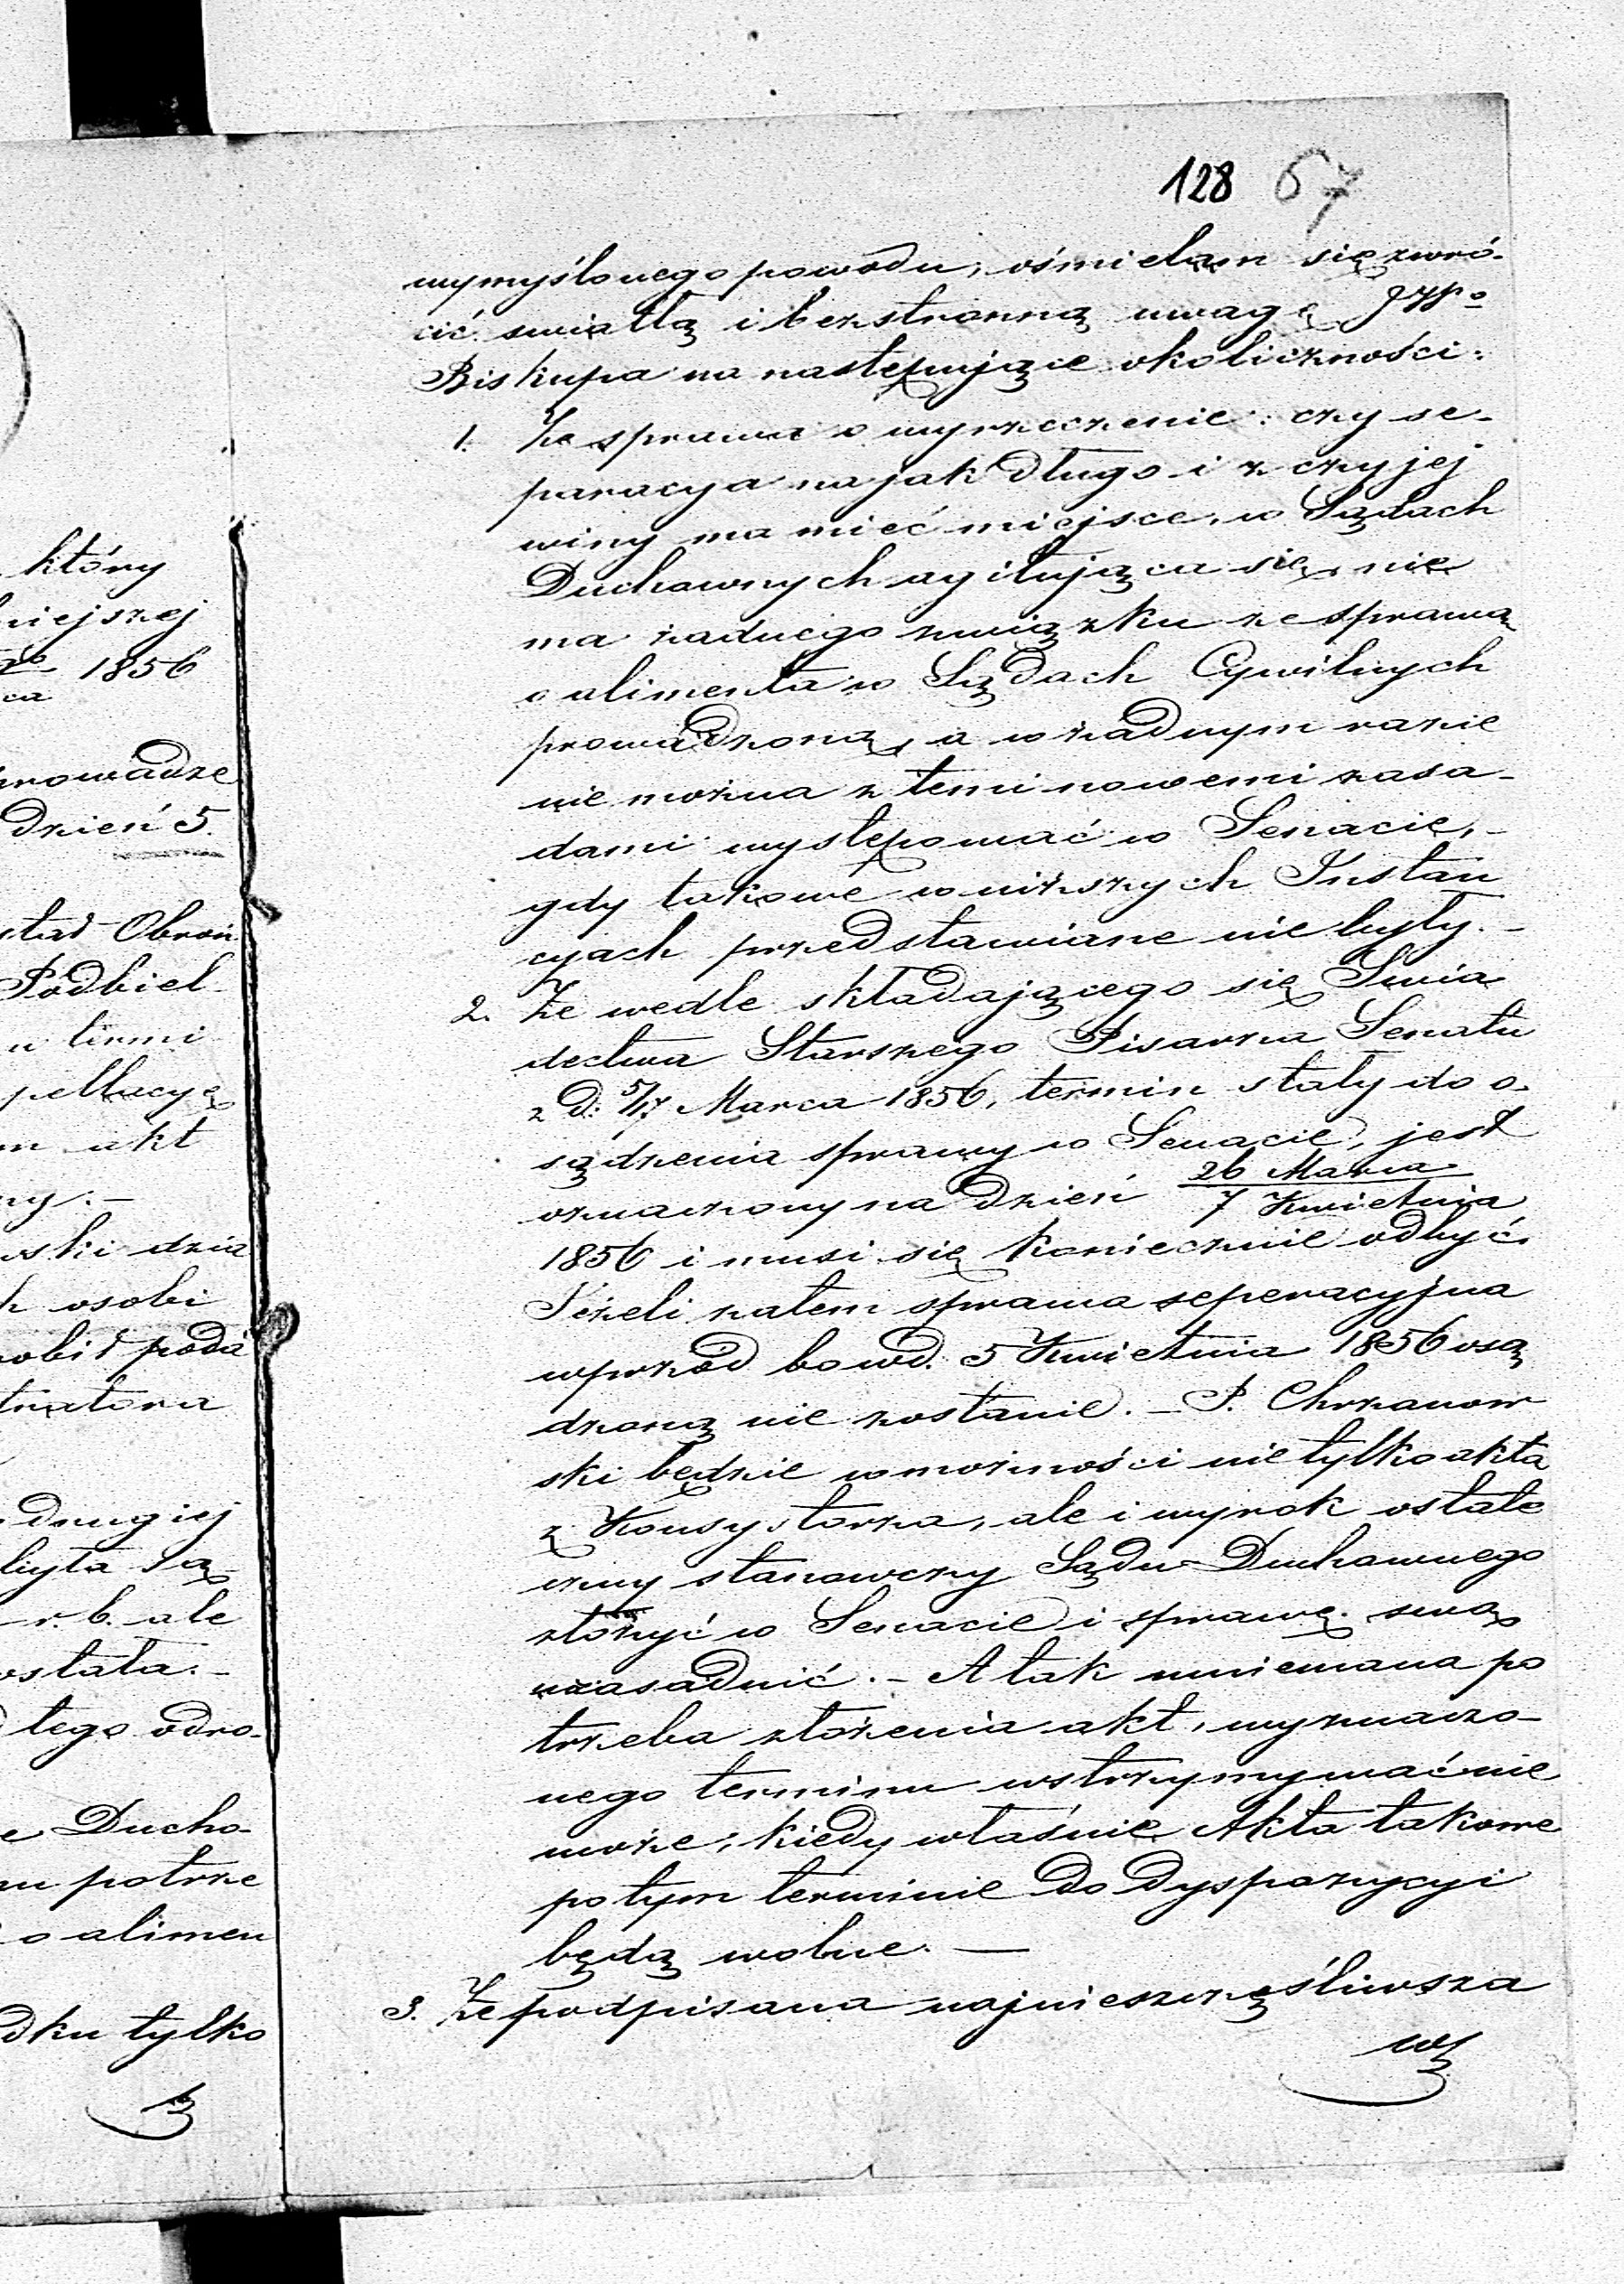 128 67
wymyślonego powodu, ośmielam się zwró-
cić swiatłą i bezstronną uwagę JWgo
Biskupa na następujące okoliczności:
1. Że sprawa o wyrzeczenie: czy se-
paracya na jak długo i z czyjej
winy ma mieć miejsce, w Sądach
Duchownych agitująca się, nie
ma żadnego związku ze sprawą
o alimenta w Sądach Cywilnych
prowadzoną, a w żadnym razie
nie można z temi nowemi zasa-
dami występować w Senacie, -
gdy takowe w niższych Instan
cyach przedstawiane nie były. -
2. Że wedle składającego się Swia
dectwa Starszego Pisarza Senatu
z d: 5/17 Marca 1856, termin stały do o-
sądzenia sprawy w Senacie, jest
oznaczony na dzień 26 Marca / 7 Kwietnia
1856 i musi się koniecznie odbyć.
Jeżeli zatem sprawa seperacyjna
wprzód bo w d. 5 Kwietnia 1856 osą
dzoną nie zostanie. - P. Chrzanow
ski będzie w możności nie tylko akta
z Konsystorza, ale i wyrok ostate
czny stanowczy Sądu Duchownego
złożyć w Senacie i sprawę swą
uzasadnić. - A tak mniemana po
trzeba złożenia akt, wyznaczo-
nego terminu wstrzymywać nie
może, kiedy właśnie Akta takowe
po tym terminie do dyspozycyi
będą wolne. —
3. Że podpisana najnieszczęśliwsza
w
który
niejszej
1856
ca
prowadze
dzień 5.
Obroń
Podbiel
u termi
pellacyę
akt
ny. -
wski dzia
osobi
robił podá
tratora
drugiej
była są
r. b. ale
ostała. -
tego odro-
e Ducho-
potrze
o alimen
dku tylko